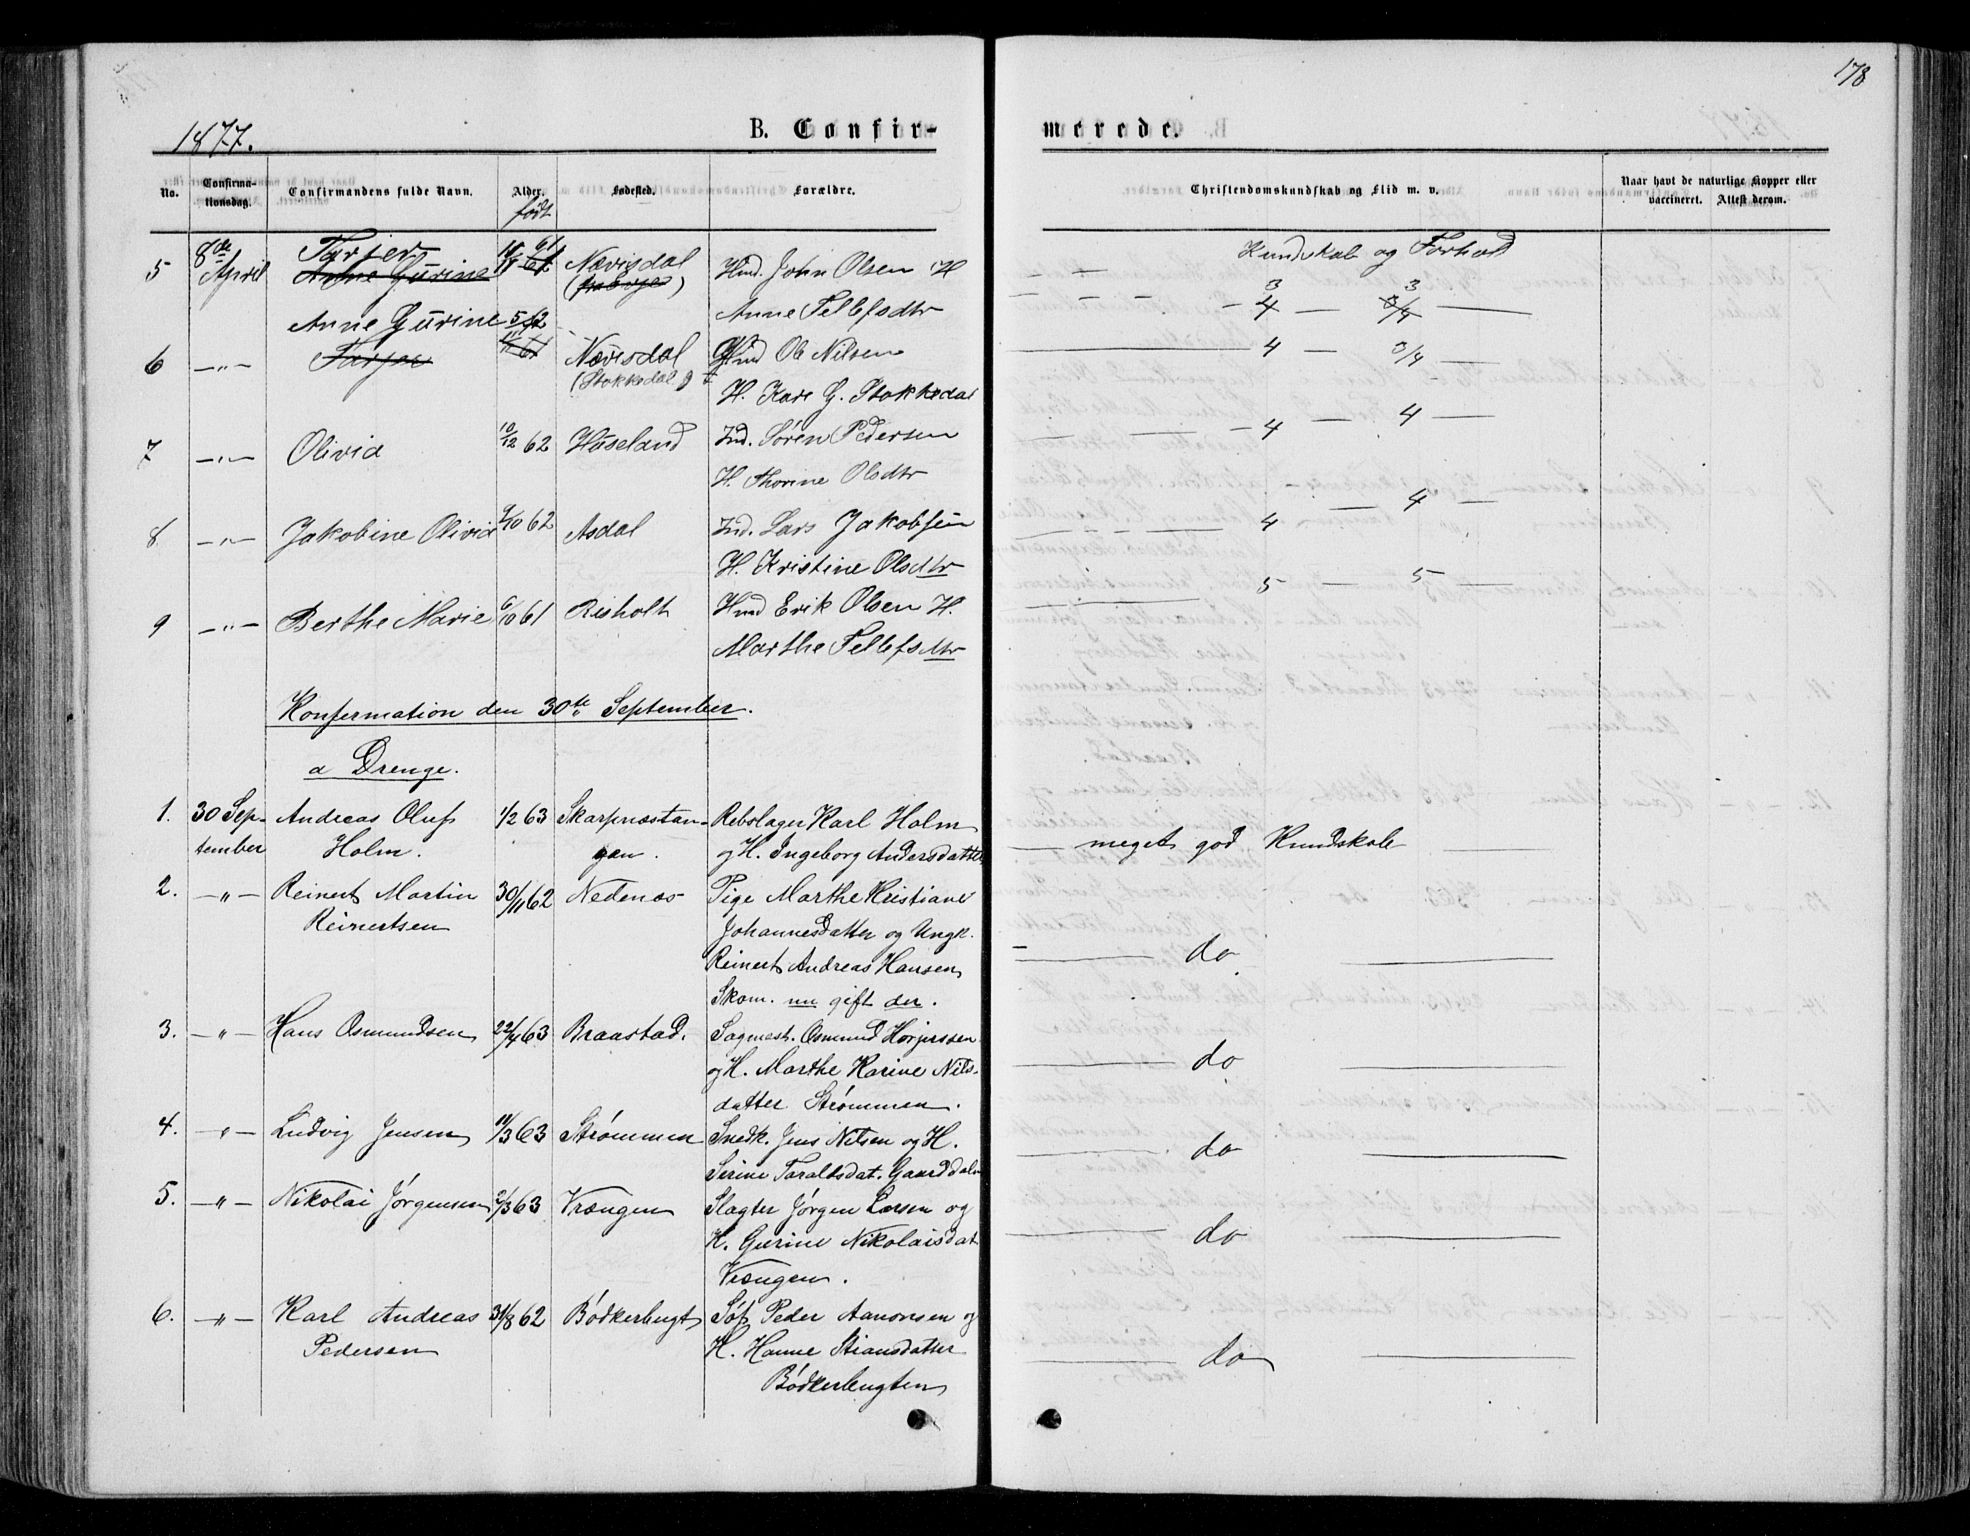 178
1877. B. Confir- merede.
No. Confirma-tionsdag. Confirmandens fulde Navn. Alder. Fødested. Forældre. Christendomskundskab og Flid m. v. Naar havt de naturlige Kopper eller vaccineret. Attest derom.
født
8de Tarjer 61 Kundskab og Forhold
5 April Anne Gurine Nævisdal Hmd. John Olsen H
Anne Tellefsdtr 3 3
4
Anne Gurine 62
6 —"— Tarjer 61 Nævisdal Hmd Ole Nilsen 4 — 3/4
(Stokkedal) H. Kare G. Stokkedal
7 —"— Olivia 10/12 62 Huseland Ind. Sören Pedersen 4 — 4
H. Thorine Olsdtr
8 —"— Jakobine Olivia 9/10 62 Asdal Ind. Lars Jakobsen 4 — 4
H. Kristine Olsdtr
9 —"— Berthe Marie 6/10 61 Risholt Hmd Erik Olsen H. 5 — 5
Marthe Tellefsdtr
Konfermation den 30te September.
a Drenge.
1. 30 Sep- Andreas Oluf 1/2 63 Skarpnæstan- Rebslager Karl Holm
tember Holm. gen. og H. Ingeborg Andersdatter — meget god Kundskab —
2. —"— Reinert Martin 30/11 62 Nedenæs Pige Marthe Kristiane
Reinertsen Johannesdatter og Ungk.
Reinert Andreas Hansen — do —
Skom. nu gift der.
3. —"— Hans Osmundsen 22/4 63 Braastad. Sagmest. Osmund
og H. Marthe Karine Nils- — do —
datter Strømmen.
4. —"— Ludvig Jensen 11/3 63 Strømmen Snedk. Jens Nilsen og H. — do —
Serine Taraldsdat. Gaarddalen
5. —"— Nikolai Jørgensen 2/3 63 Vrængen Slagter Jørgen Larsen og
H. Gurine Nikolaisdat — do —
Vrængen.
6. —"— Karl Andreas 31/8 62 Bödkerbugt Søf. Peder Aanonsen og
Pedersen H. Hanne Stiansdatter — do —
Bödkerbugten